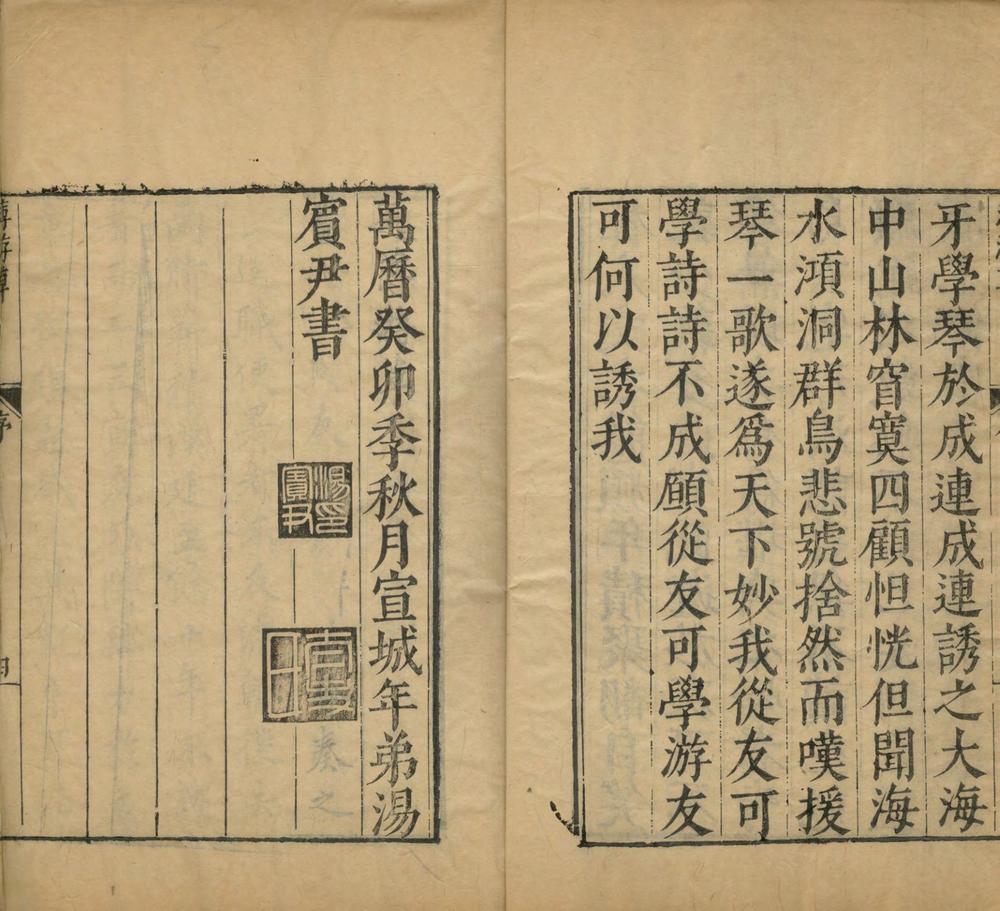 牙學琴於成連成連誘之大海
中山林窅寞四顧怛恍但聞海
水澒洞群鳥悲號捨然而嘆援
琴一歌遂爲天下妙我從友可
學詩詩不成願從友可學游友
可何以誘我
萬曆癸卯季秋月宣城年弟湯
賓尹書
湯印
賓尹
序